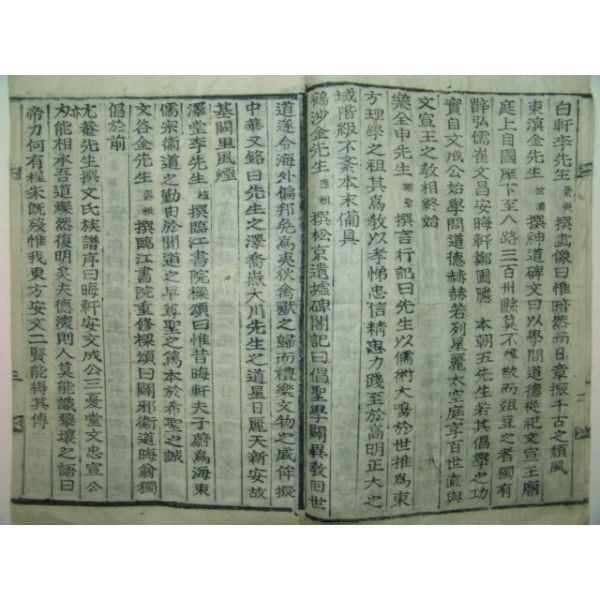 白軒李先生 景奭 撰畵像曰惟暗然而日章振千古之頹風
東溟金先生 世濂 撰神道碑文曰以學問道德從祀文宣王廟
庭上自國庠下至八路三百州縣莫不尊敬而俎豆之者獨有
薛弘儒崔文昌安晦軒鄭圃隱 本朝五先生若其倡學之功
實自文成公始學問道德赫赫若列星麗太空庭享百世直與
文宣王之敎相終始
樂全申先生 翊聖 撰言行記曰先生以儒術大鳴於世推爲東
方理學之祖其爲敎以孝悌忠信精思力踐至於高明正大之
域階級不紊本末備具
鶴沙金先生 應祖 撰松京遺墟碑閣記曰倡聖學闢異敎回世
道遂令海外偏邦免爲夷狄禽獸之歸而禮樂文物之盛侔擬
中華又銘曰先生之澤喬嶽大川先生之道星日麗天新安故
基闕里風煙
澤堂李先生 植 撰臨江書院樑頌曰惟昔晦軒夫子蔚爲海東
儒宗衛道之勤由於聞道之早尊聖之篤本於希聖之誠
文谷金先生 壽恒 撰臨江書院重修樑頌曰闢邪衛道晦翁獨
倡於前
尤菴先生撰文氏族譜序曰晦軒安文成公三憂堂文忠宣公
亦爲能相承吾道燦然復明矣夫德潑則人莫能識擊壤之語曰
帝力何有程朱旣歿惟我東方安文二賢能得其傳
二
三